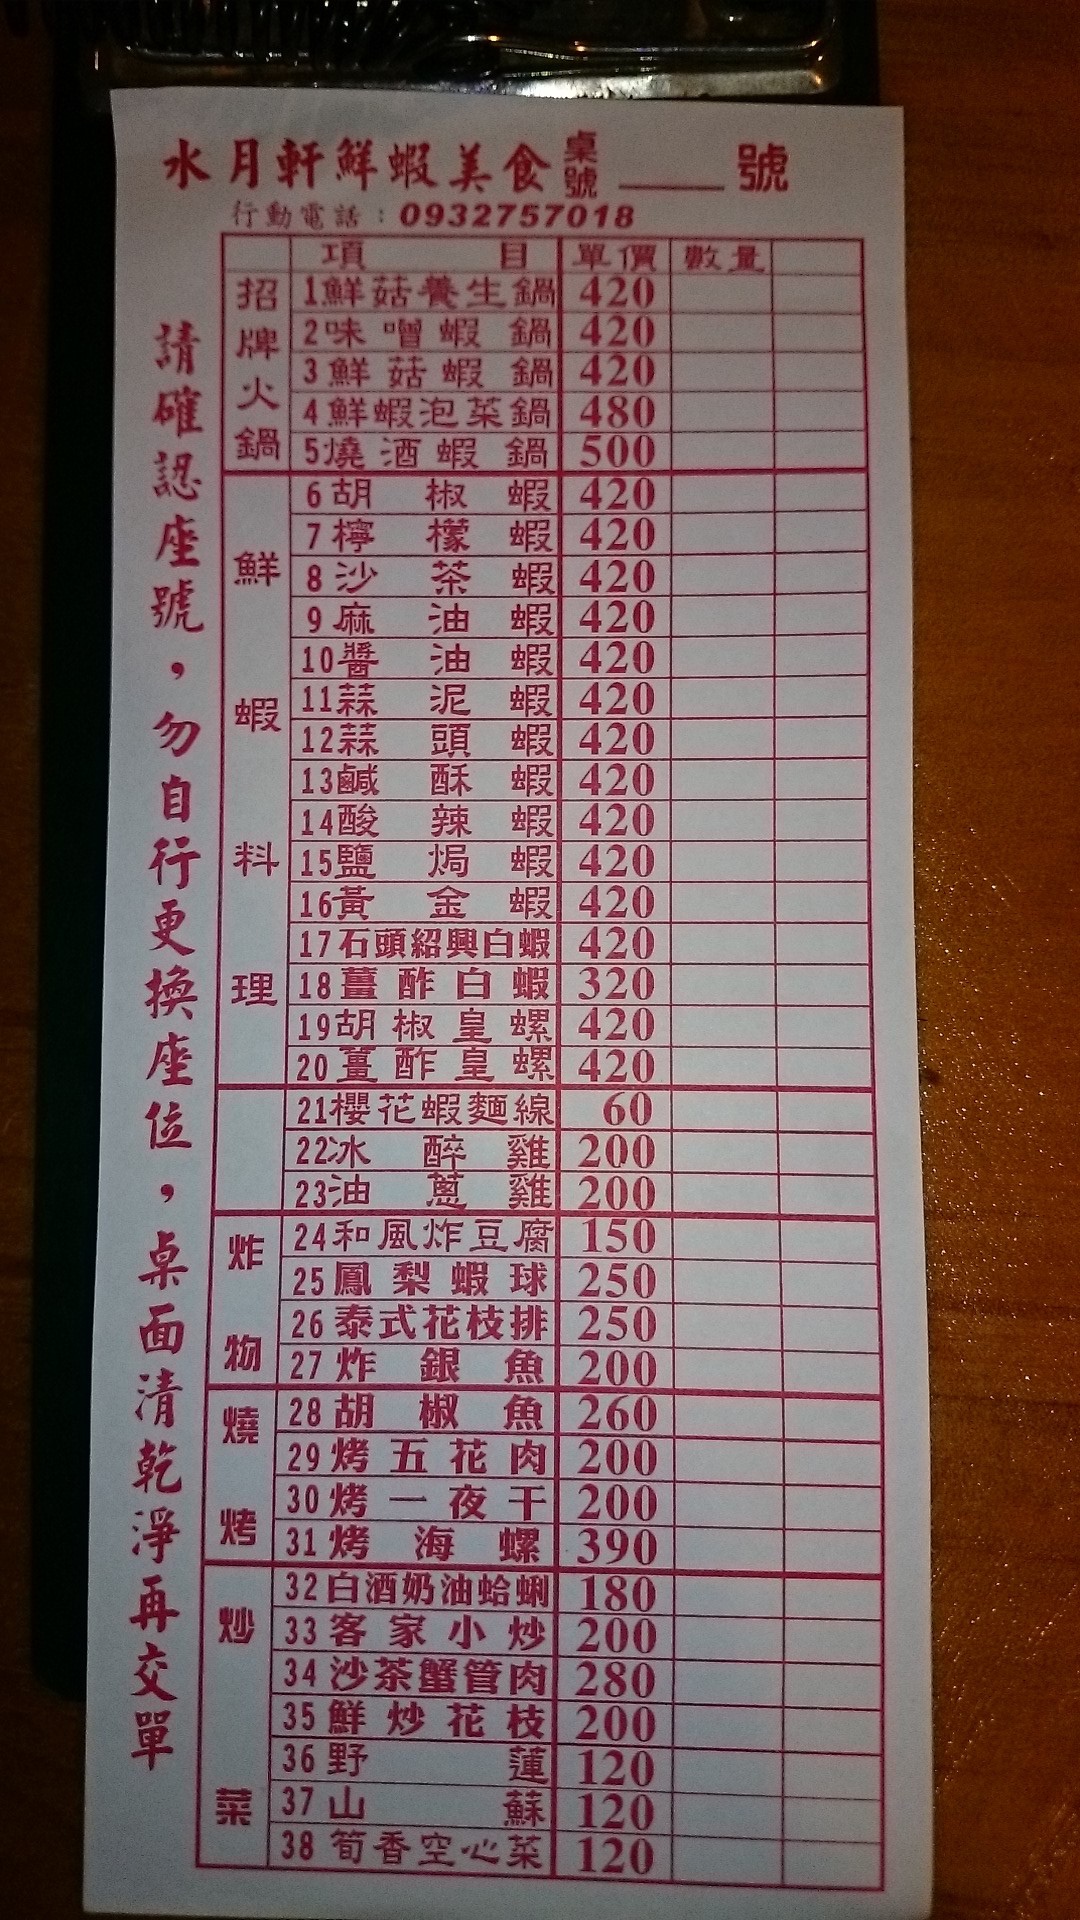 水月軒鮮蝦美食 桌號 ____ 號
行動電話：0932757018
請確認座號，勿自行更換座位，桌面清乾淨再交單
項目 單價 數量
招牌火鍋
1鮮菇養生鍋 420
2味噌蝦鍋 420
3鮮菇蝦鍋 420
4鮮蝦泡菜鍋 480
5燒酒蝦鍋 500
鮮蝦料理
6胡椒蝦 420
7檸檬蝦 420
8沙茶蝦 420
9麻油蝦 420
10醬油蝦 420
11蒜泥蝦 420
12蒜頭蝦 420
13鹹酥蝦 420
14酸辣蝦 420
15鹽焗蝦 420
16黃金蝦 420
17石頭紹興白蝦 420
18薑酢白蝦 320
19胡椒皇螺 420
20薑酢皇螺 420
21櫻花蝦麵線 60
22冰醉雞 200
23油蔥雞 200
炸物
24和風炸豆腐 150
25鳳梨蝦球 250
26泰式花枝排 250
27炸銀魚 200
燒烤
28胡椒魚 260
29烤五花肉 200
30烤一夜干 200
31烤海螺 390
炒菜
32白酒奶油蛤蜊 180
33客家小炒 200
34沙茶蟹管肉 280
35鮮炒花枝 200
36野蓮 120
37山蘇 120
38筍香空心菜 120